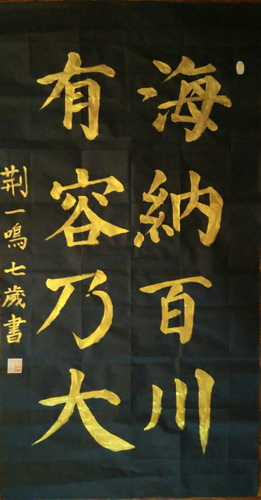 海纳百川
有容乃大
荆一鳴七歲書